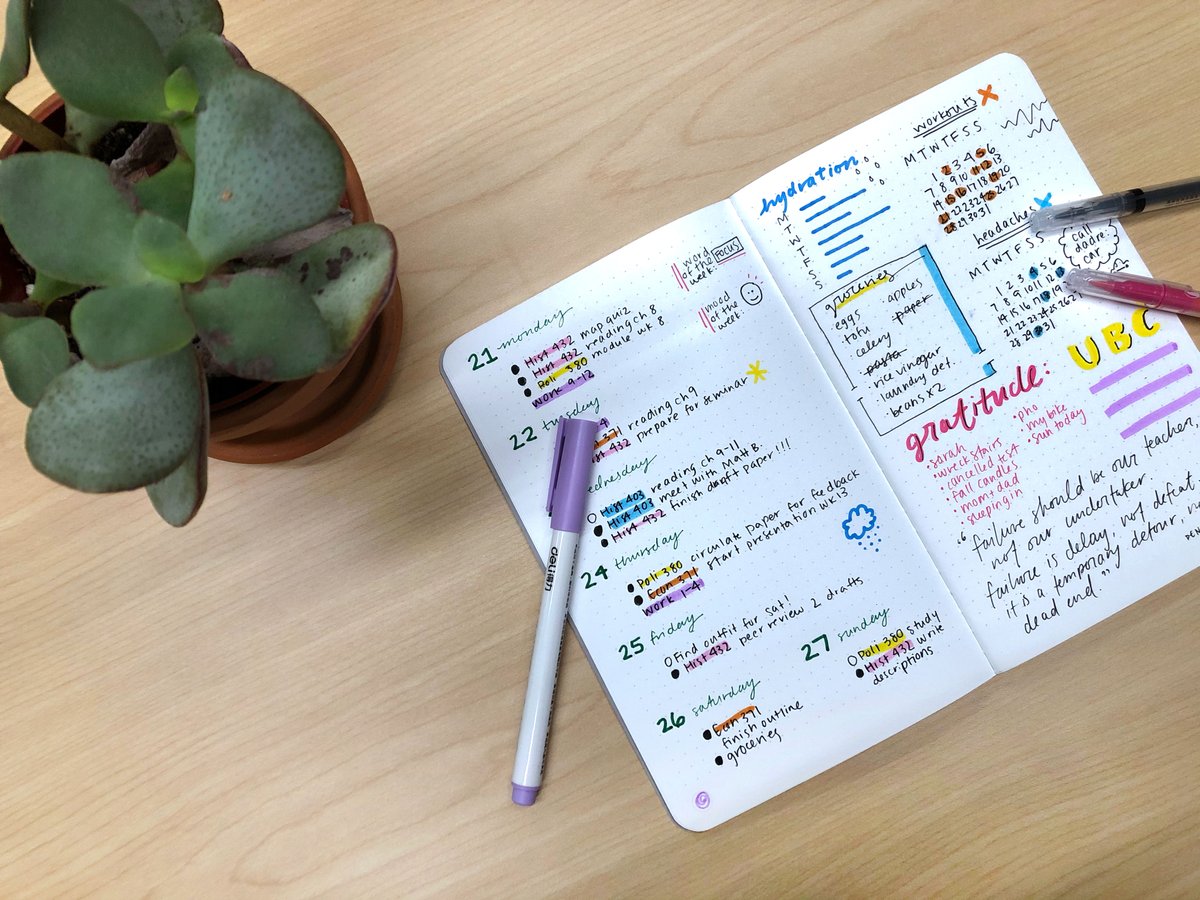 word
of the
week:
FOCUS!
mood
of the
week
21 monday
Hist 432 map quiz
Hist 432 reading ch 8
Poli 380 module wk 8
work 9-12
22 tuesday
371 reading ch 9
432 prepare for seminar
ednesday
Hist 403 reading ch 9-11
Hist 403 meet with Matt B.
Hist 432 finish draft paper!!!
24 thursday
Poli 380 circulate paper for feedback
Econ 371 start presentation wk 13
work 1-4
25 friday
Find outfit for Sat!
Hist 432 peer review 2 drafts
26 saturday
Econ 371
finish outline
groceries
27 sunday
Poli 380 study
Hist 432 write
descriptions
deli
hydration
M
T
W
T
F
S
S
groceries
eggs
tofu
celery
pasta
rice vinegar
laundry det.
beans x2
apples
paper
workouts
M T W T F S S
1 2 3 4 5 6
7 8 9 10 11 12 13
14 15 16 17 18 19 20
21 22 23 24 25 26 27
28 29 30 31
headaches
M T W T F S S
1 2 3 4 5 6
7 8 9 10 11 12
14 15 16 17 18 19 20
21 22 23 24 25 26 27
28 29 31
call
dad re:
car
UBC
gratitude:
sarah
wreck stairs
cancelled test
fall candles
mom + dad
sleeping in
pho
my bike
sun today
failure should be our teacher,
not our undertaker.
failure is delay, not defeat,
it is a temporary detour, not
dead end."